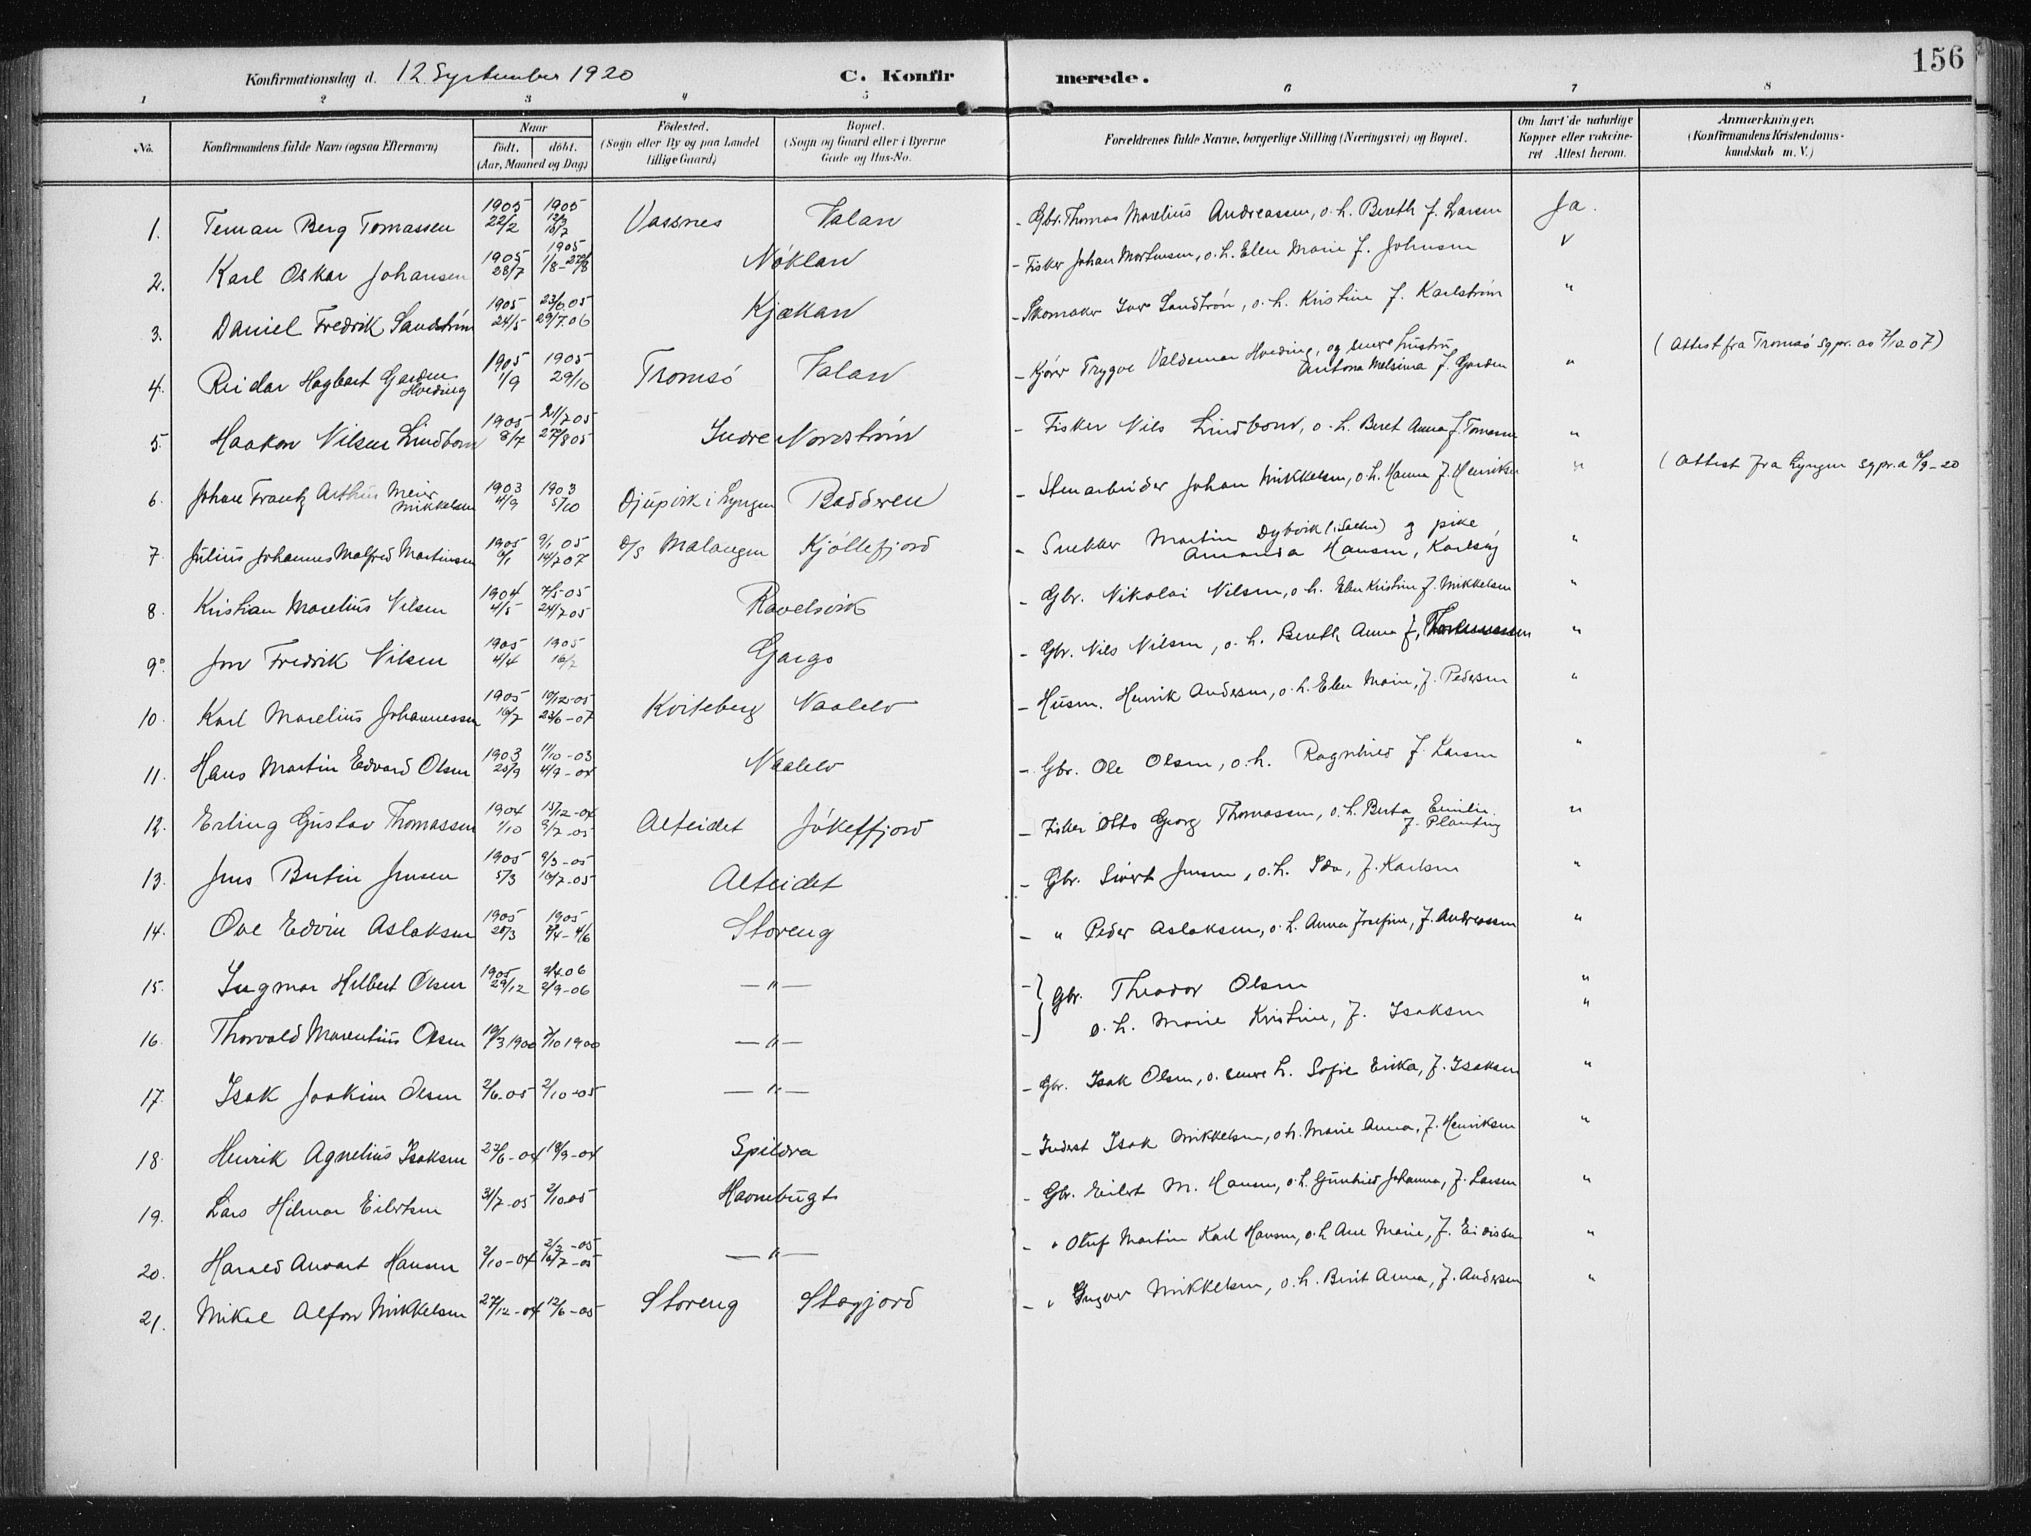 156
Konfirmationsdag d. 12 September 1920 C. Konfirmerede.
1 2 3 4 5 6 7 8
No. Konfirmandens fulde Navn (ogsaa Efternavn) Naar födt. döbt. (Aar, Maaned og Dag) Födested. (Sogn eller By og paa Landet tillige Gaard) Bopæl. (Sogn og Gaard eller i Byerne Gade og Hus-No. Forældrenes fulde Navne, borgerlige Stilling (Næringsvei) og Bopæl. Om havt de naturlige Kopper eller vakcineret Attest herom. Anmærkninger. (Konfirmandens Kristendomskundskab m. V.)
1. Teman Berg Tomassen 1905 22/2 1905 12/3 16/7 Vassnes Valan - Gbr. Thomas Marelius Andreassen, o. h. Bereth f. Larsen Ja.
2. Karl Oskar Johansen 1905 28/7 1905 Nöklan - Fisker Johan Mortensen, o. h. Elen Marie f. Johnsen
3. Daniel Fredrik Sandström 1905 24/5 29/7.06 Kjækan - Skomaker Ivar Sandtrön, o. h. Kristine f. Karlström "
4. Reidar Hagbart Garden Hveding 1905 1/9 1905 29/10 Tromsö Valan - Trygve Valdemar Hveding, og hustru Antona Melsina f. Garden " (Attest fra Tromsö sgpr. 07)
5. Haakon Nilsen Lindbom 1905 8/7 27/8 05 Indre Nordström - Fisker Nils Lindbom, o. h. Beret Anna f. "
6. Johan Frantz Arthur Meier Mikkelsen 1903 4/9 1903 5/10 Djupvik i Lyngen Badderen - Stenarbeider Johan Mikkelsen, o. h. Hanna f. Henriksen " (Attest fra Lyngen sgpr. -20
7. Julius Johannes Malfred Martinsen 1905 6/1 9/1 05 14/7 07 Malangen Kjöllefjord - Snekker Martin Dybvik og pike Amanda Hansen, Karlsöy "
8. Kristian Marelius Nilsen 1904 4/5 7/5-05 24/7 05 Ravelsvik - Gbr. Nikolai Nilsen, o. h. Elen Kristine f. Mikkelsen "
9. Jon Fredrik Nilsen 1905 4/4 1905 16/7 Gargo - Gbr. Nils Nilsen, o. h. Bereth Anna f. "
10. Karl Marelius Johannessen 1905 16/7 10/12-05 23/6-07 Kviteberg Naalelv - Husm. Henrik Andersen, o. h. Elen Marie, f. Pedersen "
11. Hans Martin Edvard Olsen 1903 25/9 11/10-03 4/9-04 Naalelv - Gbr. Ole Olsen, o. h. Ragnhild f. Larsen "
12. Erling Gustav Thomassen 1904 1/10 15/12-04 9/7-05 Alteidet Jökelfjord - Fisker Otto Georg Thomassen, o. h. Berta Emilie f. Planting "
13. Jens Bertin Jensen 1905 5/3 9/3-05 16/7-05 Alteidet - Gbr. Sivert Jensen, o. h. Ida, f. Karlsen "
14. Ove Edvin Aslaksen 1905 28/3 1905 4/6 Storeng - " Peder Aslaksen, o. h. Anna Josefine, f. Andreassen "
15. Ingmar Hilbert Olsen 1905 29/12 2/4.06 2/9-06 - " - - Gbr. Theodor Olsen "
16. Thorvald Marentius Olsen 10/3 1900 7/10 1900 - " - - o. h. Marie Kristine, f. Isaksen "
17. Isak Joakim Olsen 2/6-05 2/10-05 - " - - Gbr. Isak Olsen, o. h. Sofie Erika, f. Isaksen "
18. Henrik Agnelius Isaksen 23/6-04 18/9-04 Spildra - Inderst Isak Mikkelsen, o. h. Marie Anna, f. Henriksen "
19. Lars Hilmar Eilertsen 31/7-05 2/10 05 Havnebugt - Gbr. Eilert M. Hansen, o. h. Gunhild Johanna, f. Larsen "
20. Harald Anvart Hansen 2/10-04 2/3-05 16/7-05 - " - - " Oluf Martin Karl Hansen, o. h. Ane Marie, f. Eidissen "
21. Mikal Alfon Mikkelsen 27/12-04 12/6-05 Storeng Stogjord - " Mikkelsen, o. h. Berit Anna, f. Andersen "